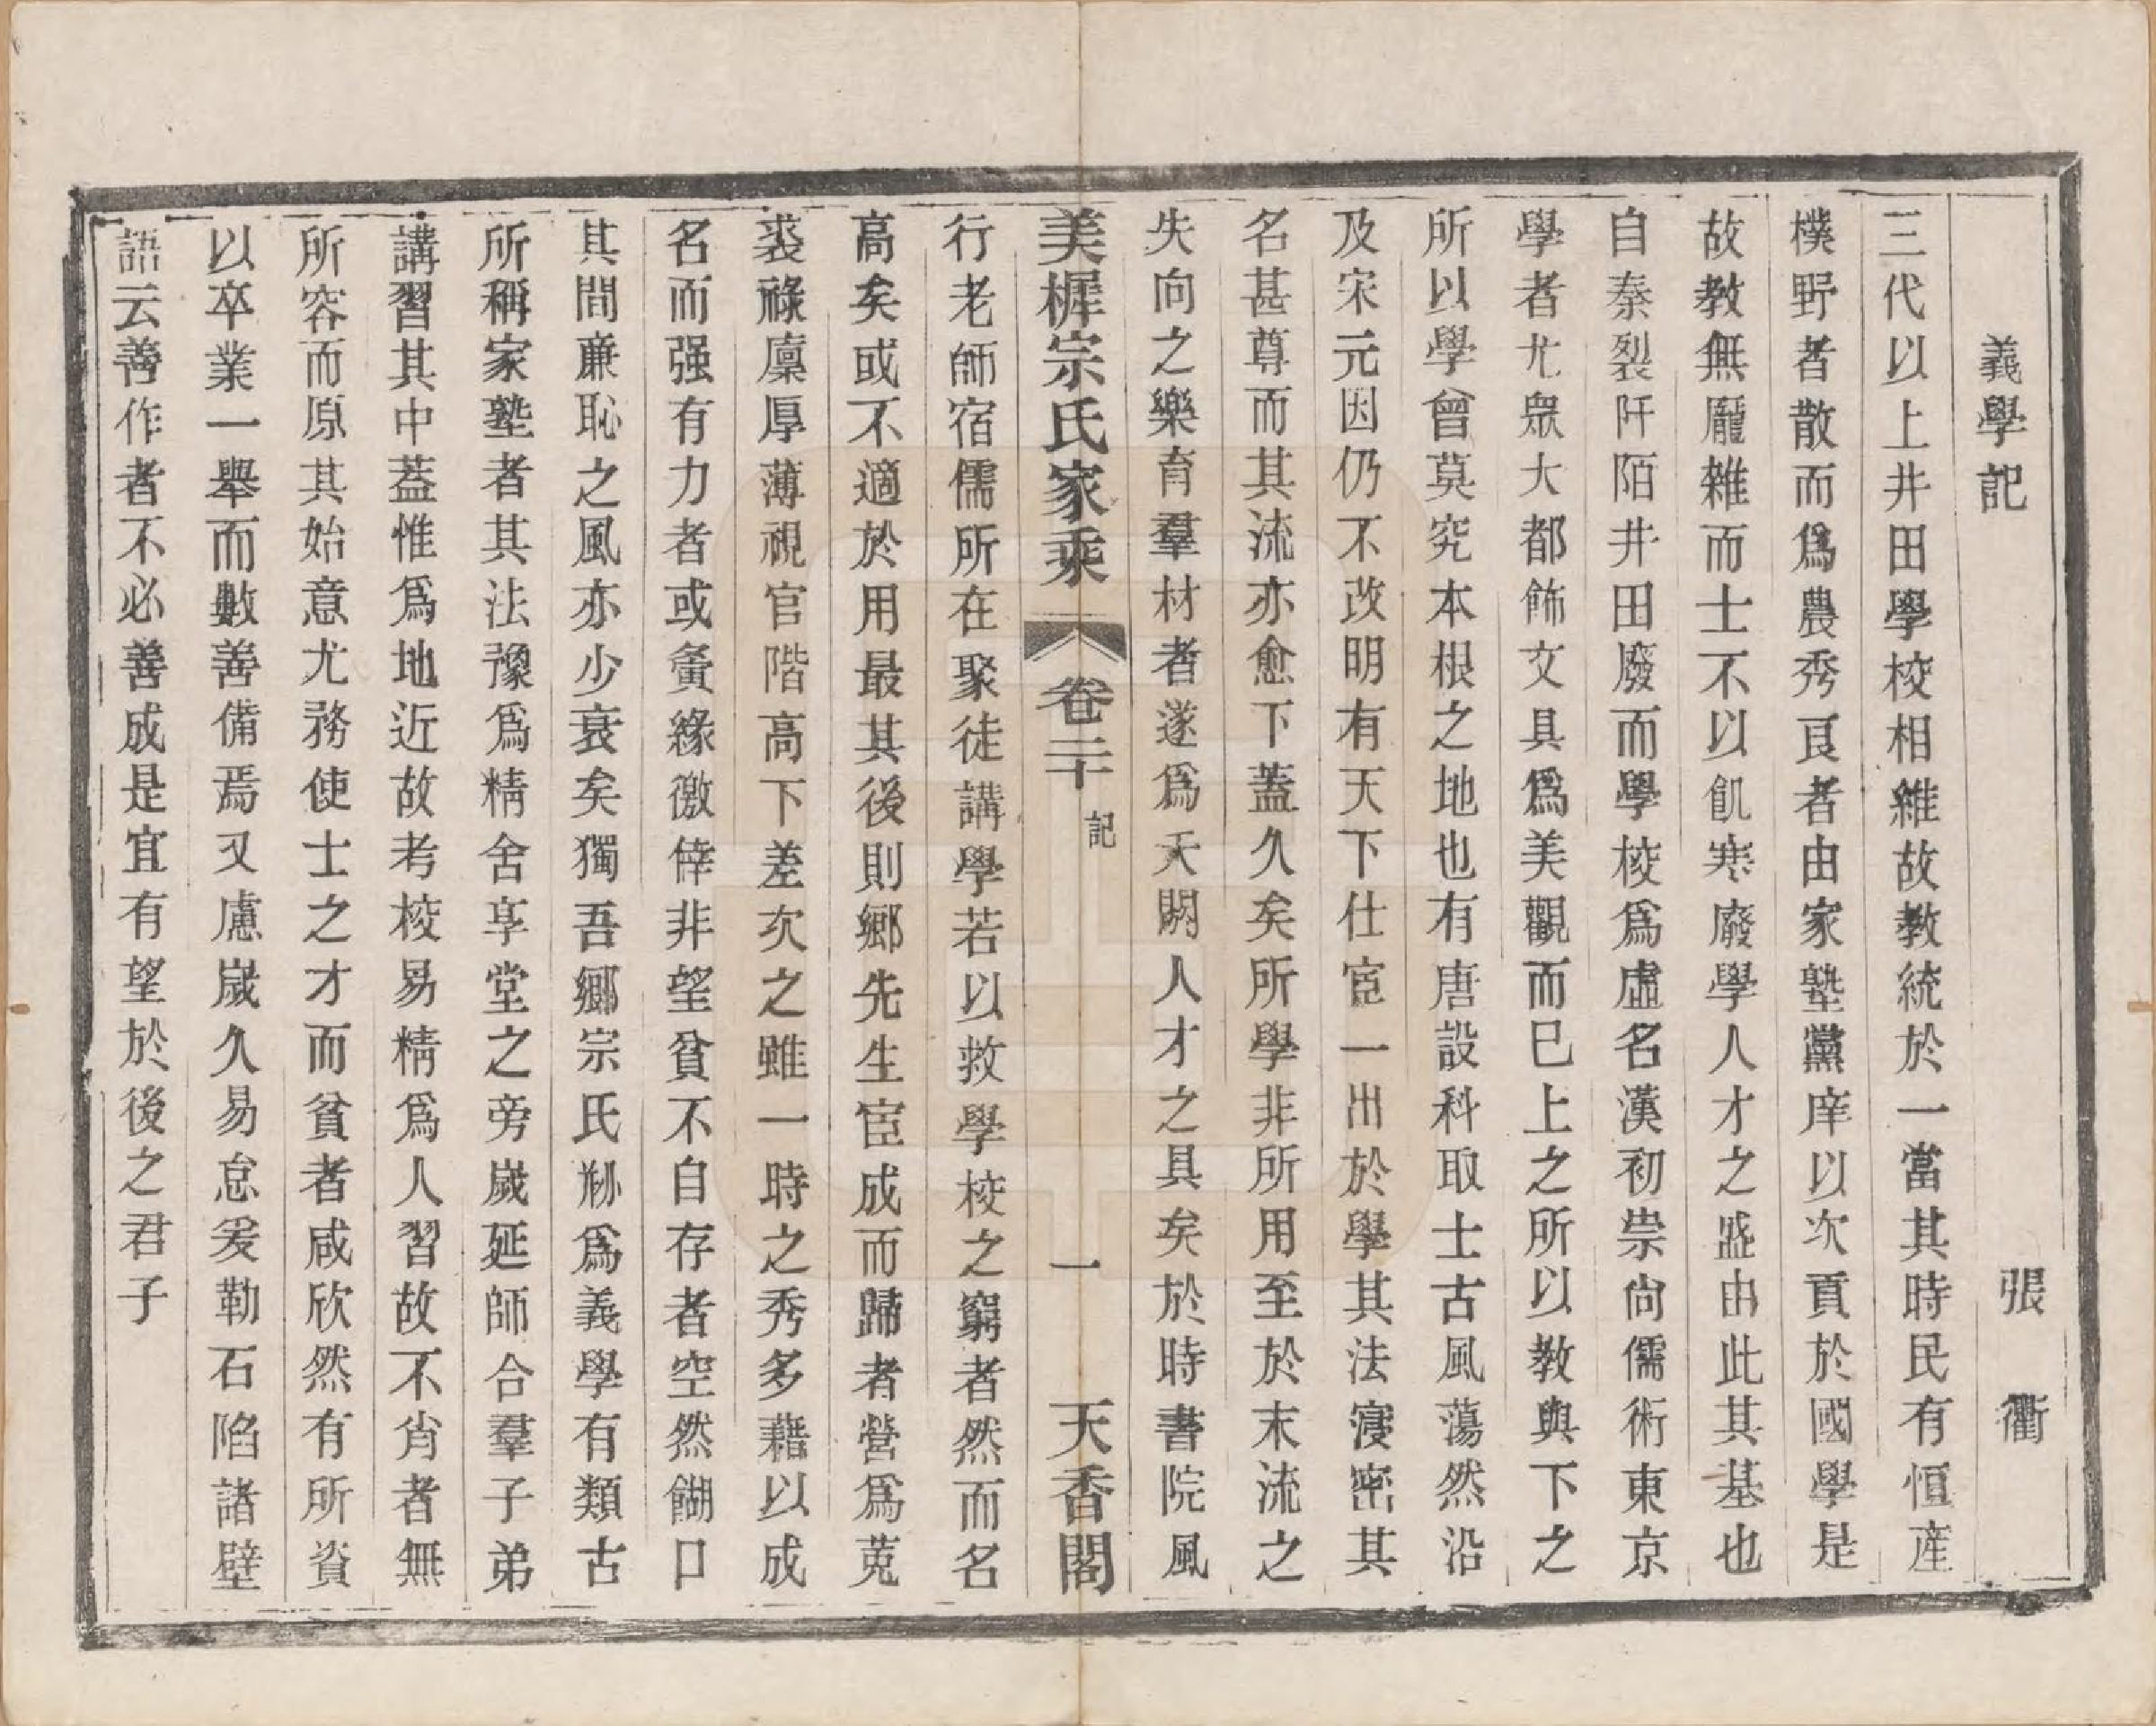 義學記　張　衢
三代以上井田學校相維故教統於一當其時民有恒産
樸野者散而爲農秀良者由家塾黨庠以次貢於國學是
故教無龎雜而士不以飢寒廢學人才之盛由此其基也
自秦裂阡陌井田廢而學校爲虛名漢初崇尙儒術東京
學者尤衆大都飾文具爲美觀而已上之所以教與下之
所以學曾莫究本根之地也有唐設科取士古風蕩然沿
及宋元因仍不改明有天下仕宦一出於學其法寖密其
名甚尊而其流亦愈下蓋久矣所學非所用至於末流之
失向之樂育羣材者遂爲夭閼人才之具矣於時書院風
美樨宗氏家乘　卷二十　記　一　天香閣
行老師宿儒所在聚徒講學若以救學校之窮者然而名
高矣或不適於用最其後則鄉先生宦成而歸者營爲菟
裘祿廩厚薄視官階高下差次之雖一時之秀多藉以成
名而强有力者或夤緣徼倖非望貧不自存者空然餬口
其間廉恥之風亦少衰矣獨吾鄉宗氏刱爲義學有類古
所稱家塾者其法豫爲精舍享堂之旁歲延師合羣子弟
講習其中蓋惟爲地近故考校易精爲人習故不肖者無
所容而原其始意尤務使士之才而貧者咸欣然有所資
以卒業一舉而數善備焉又慮歲久易怠爰勒石陷諸壁
語云善作者不必善成是宜有望於後之君子